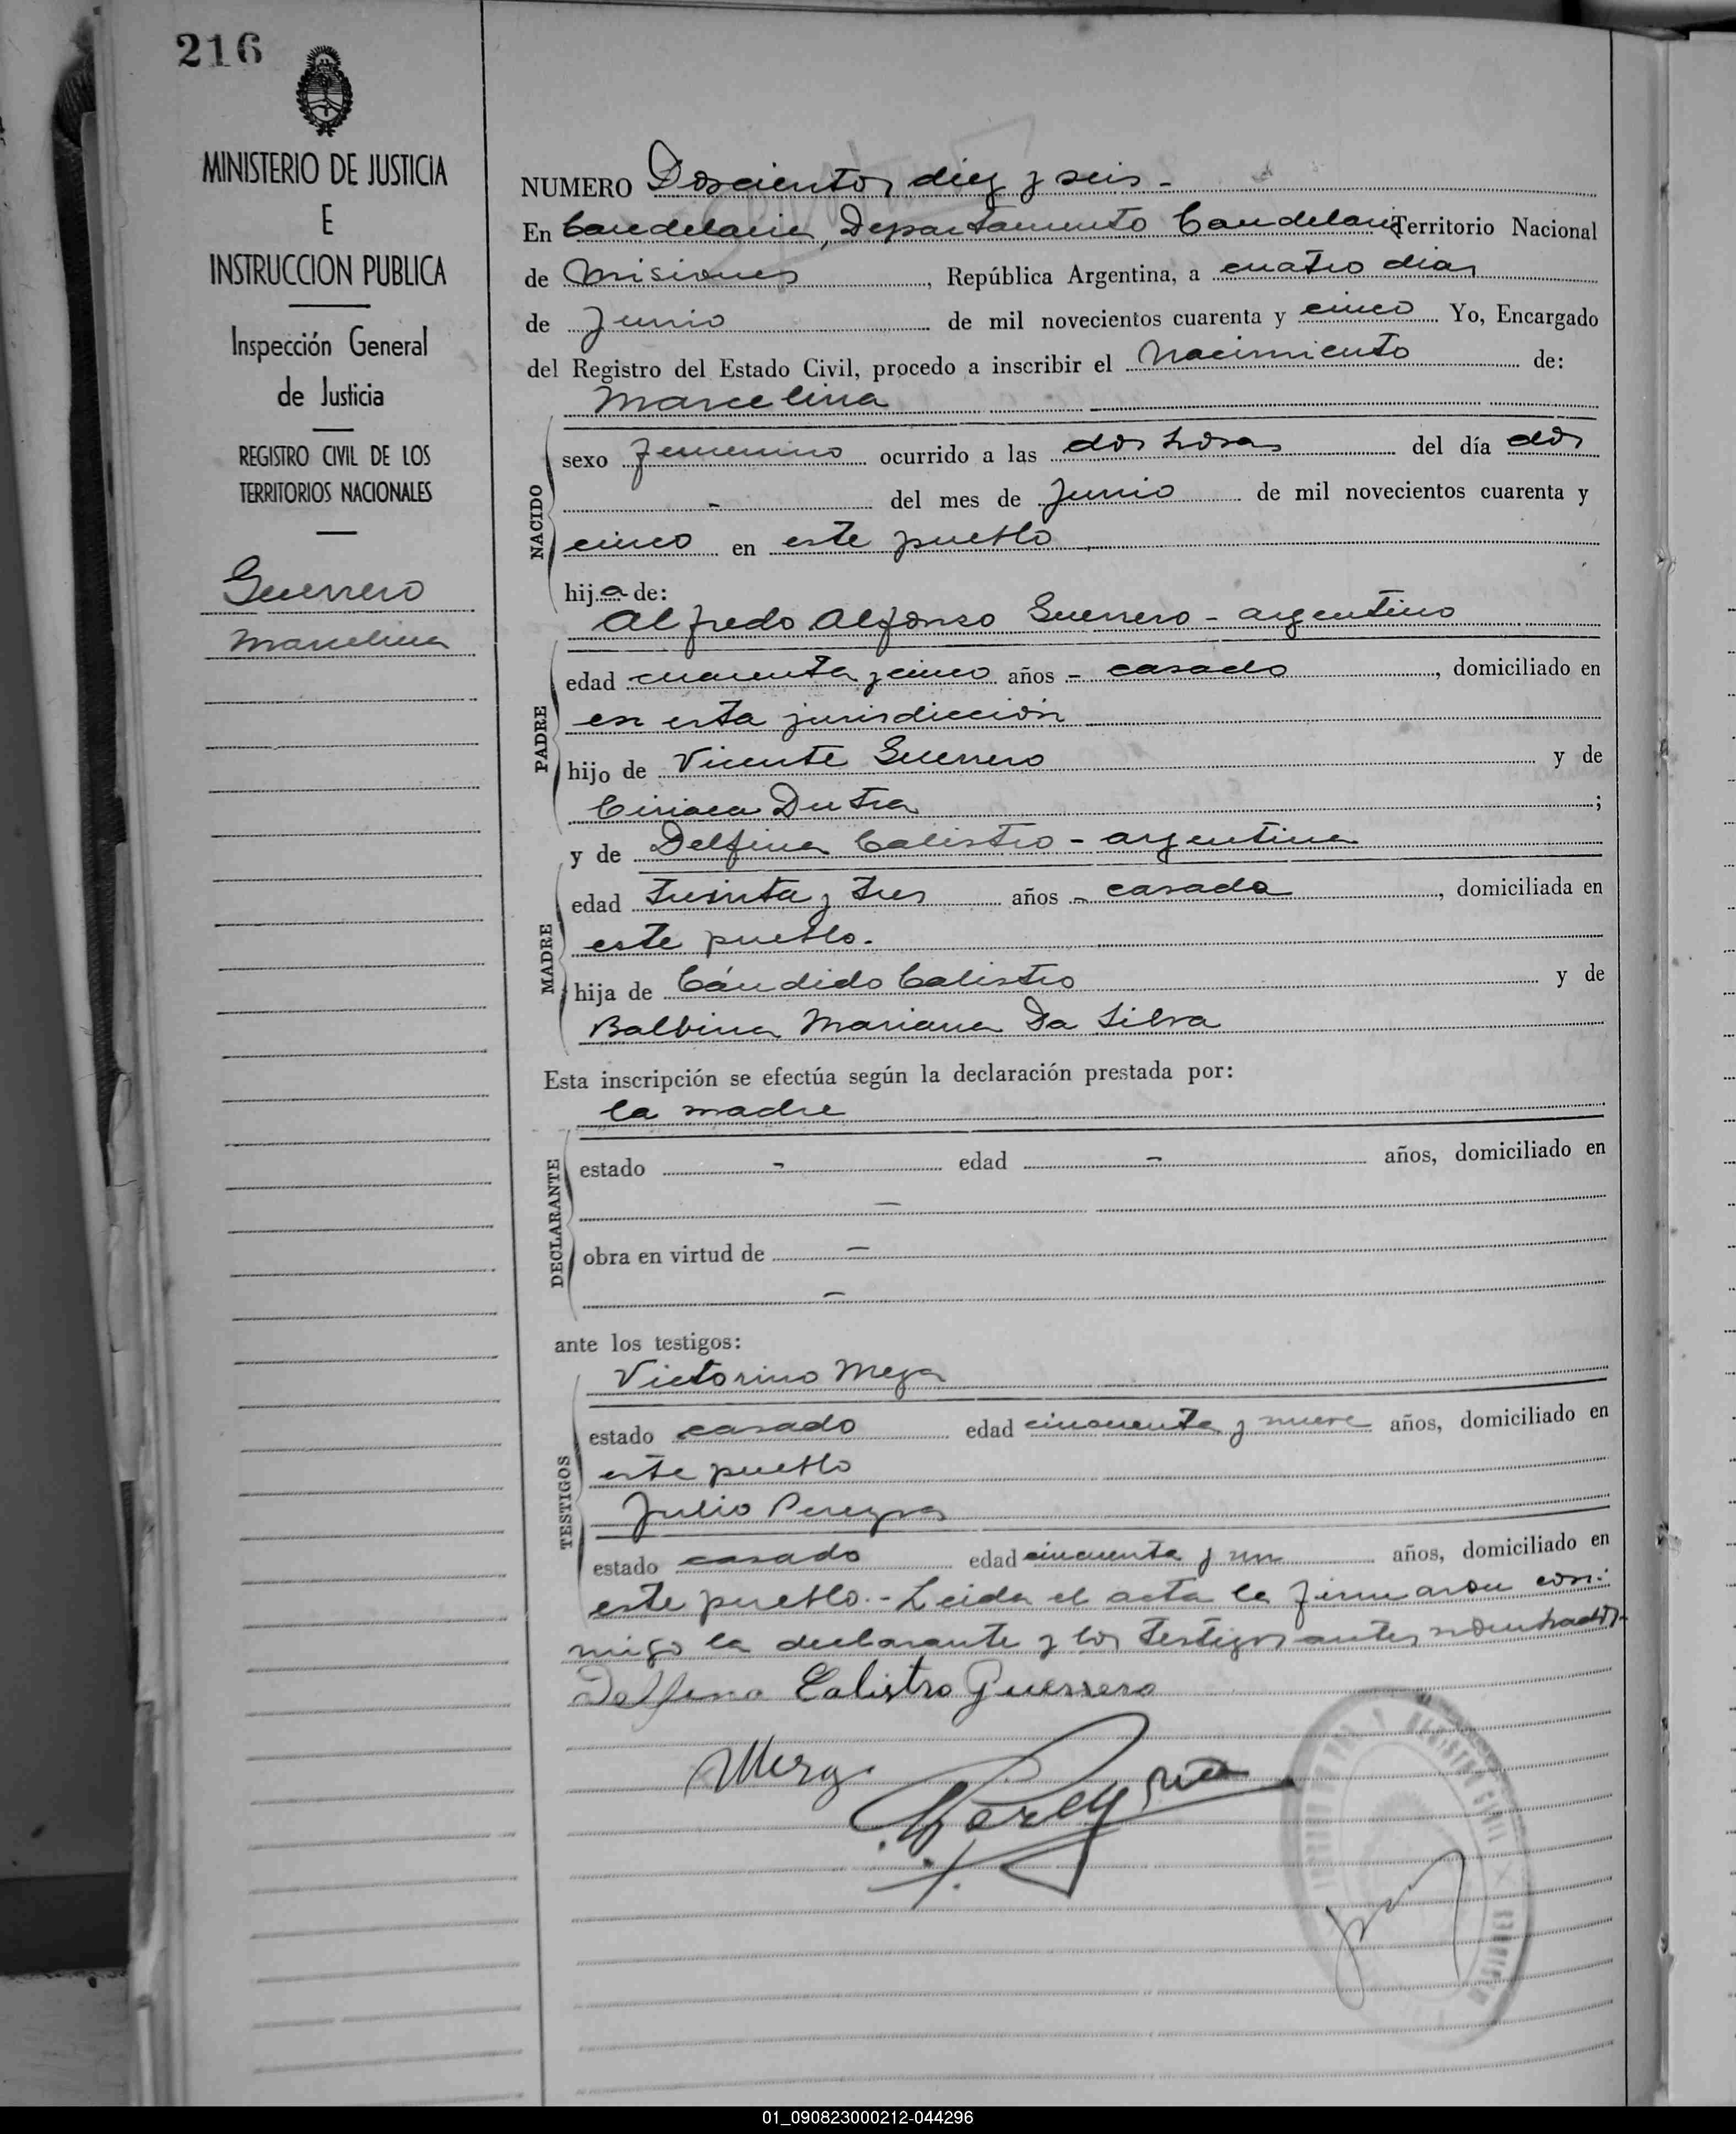 216
MINISTERIO DE JUSTICIA
E
INSTRUCCION PUBLICA
Inspección General
de Justicia
REGISTRO CIVIL DE LOS
TERRITORIOS NACIONALES
Guerrero
Marcelina
NUMERO Doscientos diez y seis -
En Candelaria, Departamento Candelaria Territorio Nacional
de Misiones, República Argentina, a cuatro dias
de Junio de mil novecientos cuarenta y cinco Yo, Encargado
del Registro del Estado Civil, procedo a inscribir el Nacimiento de:
Marcelina
NACIDO
sexo femenino ocurrido a las dos horas del día dos
- del mes de Junio de mil novecientos cuarenta y
cinco en este pueblo
hija de:
Alfredo Alfonso Guerrero - argentino
PADRE
edad cuarenta y cinco años - casado, domiciliado en
en esta jurisdicción
hijo de Vicente Guerrero y de
Ciriaca Dutra;
y de Delfina Calistro - argentina
MADRE
edad treinta y tres años - casada, domiciliada en
este pueblo.
hija de Cándido Calistro y de
Balbina Mariana Da Silva
Esta inscripción se efectúa según la declaración prestada por:
la madre
DECLARANTE
estado - edad - años, domiciliado en
-
obra en virtud de -
-
ante los testigos:
Victorino Meza
TESTIGOS
estado casado edad cincuenta y nueve años, domiciliado en
este pueblo
Julio Pereyra
estado casado edad cincuenta y un años, domiciliado en
este pueblo.- Leida el acta la firmaron con-
migo la declarante y los testigos antes nombrados-
Delfina Calistro Guerrero
Meza
Pereyra
REGISTRO CIVIL
MISIONES
01_090823000212-044296